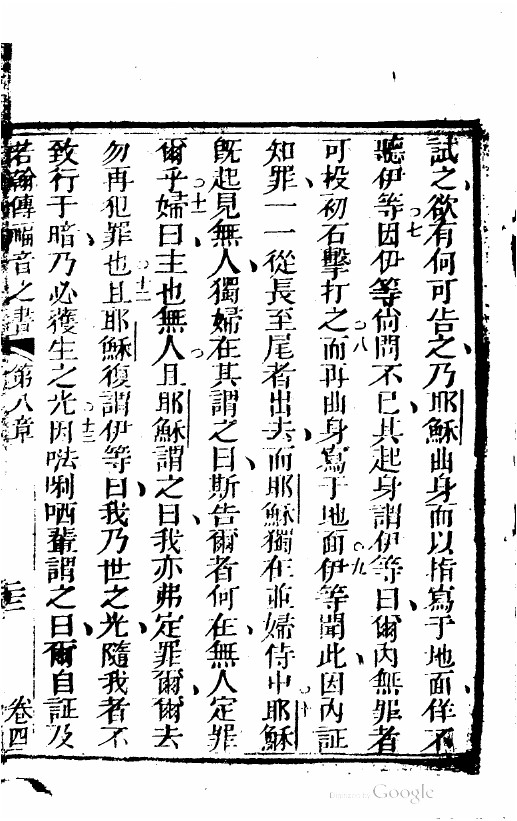 試之欲有何可告之乃耶穌曲身而以指寫于地面佯不
聽○七伊等因伊等尙問不已其起身謂伊等曰爾內無罪者
可投初石擊打之○八而再曲身寫于地面○九伊等聞此因內証
知罪一一從長至尾者出去而耶穌獨在並婦侍中○十耶穌
旣起見無人獨婦在其謂之曰斯告爾者何在無人定罪
爾乎○十一婦曰主也無人且耶穌謂之曰我亦弗定罪爾爾去
勿再犯罪也○十二且耶穌復謂伊等曰我乃世之光隨我者不
致行于暗乃必獲生之光○十三因𠵽唎哂輩謂之曰爾自証及
若翰傳福音之書 第八章 二三 卷四
Digitized by Google